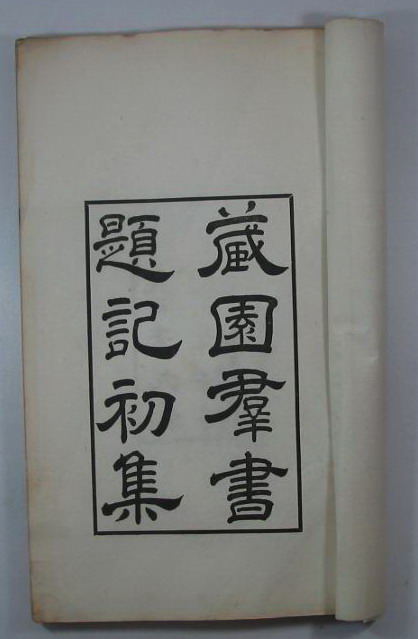 藏園羣書
題記初集